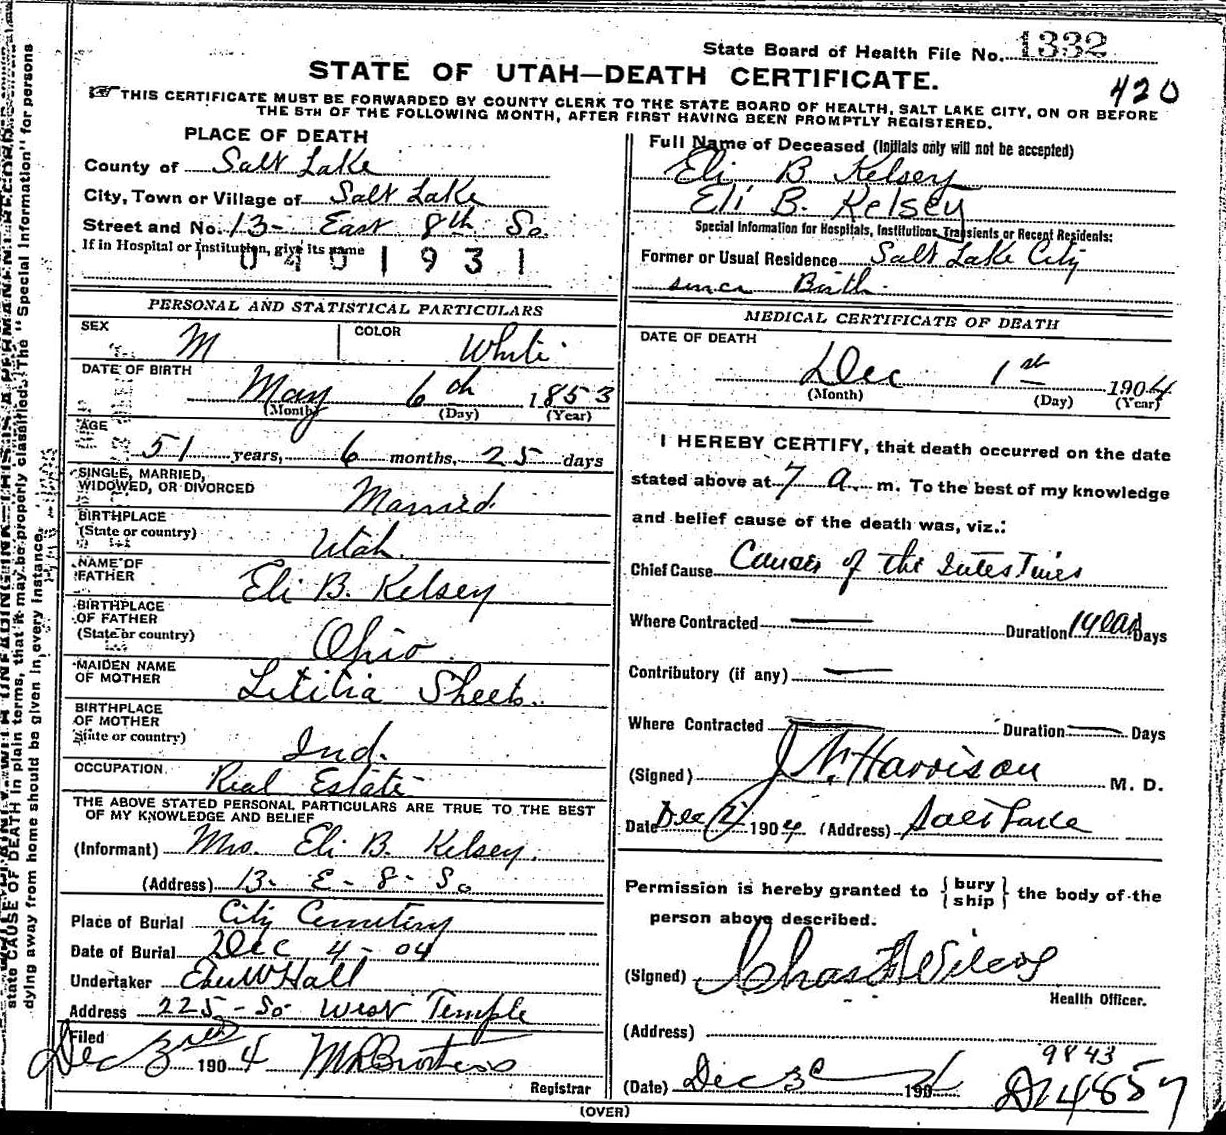 State Board of Health File No. 1332
STATE OF UTAH—DEATH CERTIFICATE.
420
THIS CERTIFICATE MUST BE FORWARDED BY COUNTY CLERK TO THE STATE BOARD OF HEALTH, SALT LAKE CITY, ON OR BEFORE
THE 5TH OF THE FOLLOWING MONTH, AFTER FIRST HAVING BEEN PROMPTLY REGISTERED.
PLACE OF DEATH
County of Salt Lake
City, Town or Village of Salt Lake
Street and No. 13- East 8th So.
If in Hospital or Institution, give its name
0401931
PERSONAL AND STATISTICAL PARTICULARS
SEX M COLOR White
DATE OF BIRTH
May 6th 1853
(Month) (Day) (Year)
AGE
51 years, 6 months, 25 days
SINGLE, MARRIED,
WIDOWED, OR DIVORCED Married
BIRTHPLACE
(State or country) Utah.
NAME OF
FATHER Eli B. Kelsey
BIRTHPLACE
OF FATHER
(State or country) Ohio.
MAIDEN NAME
OF MOTHER Letitia Sheets.
BIRTHPLACE
OF MOTHER
(State or country) Ind.
OCCUPATION Real Estate
THE ABOVE STATED PERSONAL PARTICULARS ARE TRUE TO THE BEST
OF MY KNOWLEDGE AND BELIEF
(Informant) Mrs. Eli B. Kelsey.
(Address) 13- E - 8 - So
Place of Burial City Cemetery
Date of Burial Dec 4 - 04
Undertaker Eber W Hall
Address 225 - So West Temple
Filed
Dec 3rd 1904
Registrar
Full Name of Deceased (Initials only will not be accepted)
Eli B Kelsey
Eli B. Kelsey
Special Information for Hospitals, Institutions, Transients or Recent Residents:
Former or Usual Residence Salt Lake City
since Birth.
MEDICAL CERTIFICATE OF DEATH
DATE OF DEATH
Dec 1st 1904
(Month) (Day) (Year)
I HEREBY CERTIFY, that death occurred on the date
stated above at 7 a. m. To the best of my knowledge
and belief cause of the death was, viz.:
Chief Cause Cancer of the Intestines
Where Contracted — Duration 1 year Days
Contributory (if any) —
Where Contracted — Duration — Days
(Signed) J N Harrison M. D.
Date Dec 2 1904 (Address) Salt Lake
Permission is hereby granted to { bury
ship } the body of the
person above described.
(Signed) Chas Wilcox
Health Officer.
(Address)
9843
(Date) Dec 3 190
D14857
(OVER)
state CAUSE OF DEATH in plain terms, that it may be properly classified. The "Special Information" for persons
dying away from home should be given in every instance.